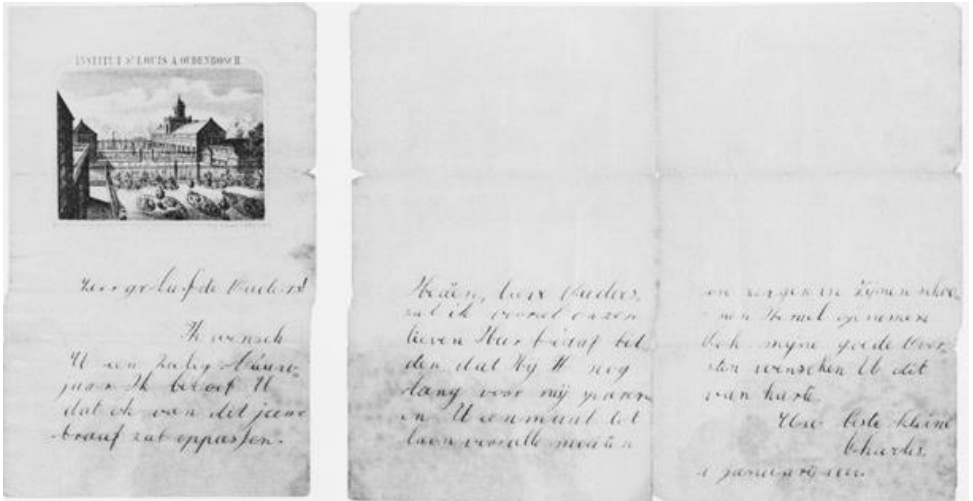 INSTITUT St LOUIS A OUDENBOSCH
Zeer geliefde Ouders!
Ik wensch
U een zalig Nieuw-
jaar. Ik beloof U
dat ik van dit jaar
braaf zal oppassen.
Heden, lieve Ouders,
zal ik vooral onzen
lieven Heer bid
den dat Hij U nog
lang voor mij spare
en U eenmaal tot
loon voor alle moeiten
en zorgen in zijnen schoo-
nen Hemel opneme.
Ook mijne goede Over-
sten wenschen U dit
van harte.
Uw beste kleine
Charles.
1 januari